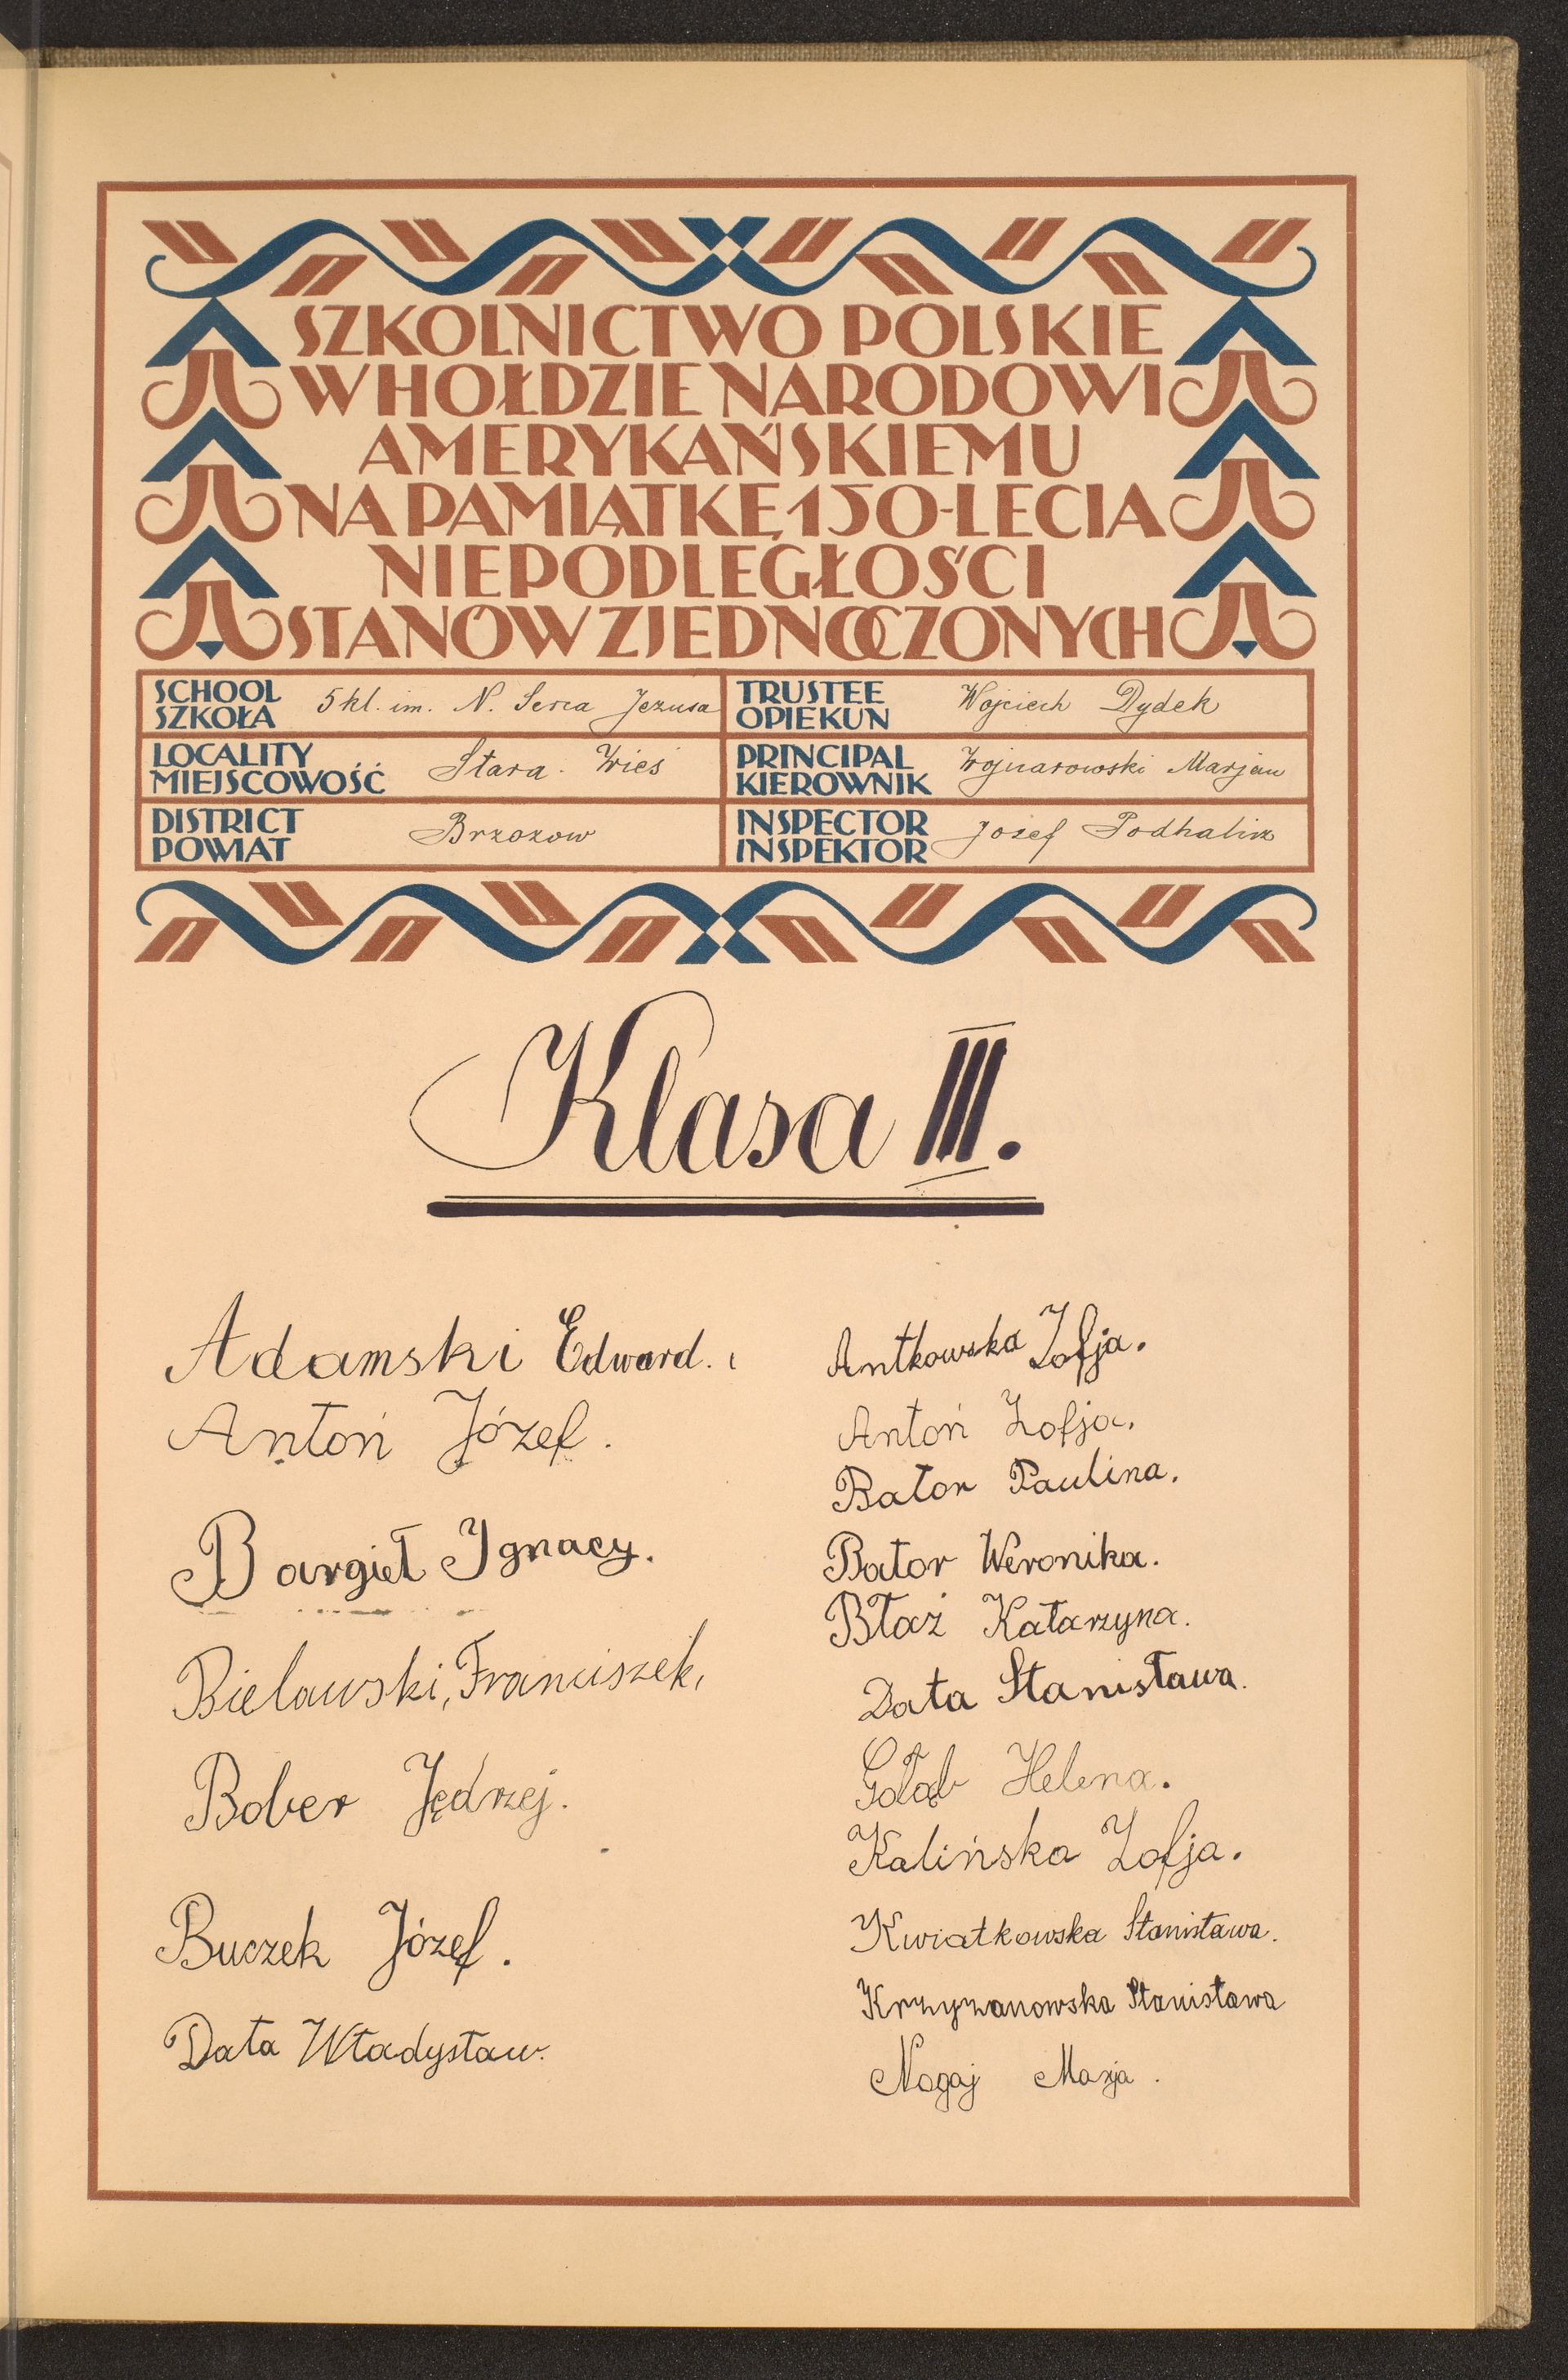 SZKOLNICTWO POLSKIE
W HOŁDZIE NARODOWI
AMERYKAŃSKIEMU
NA PAMIĄTKĘ 150-LECIA
NIEPODLEGŁOŚCI
STANÓW ZJEDNOCZONYCH
SCHOOL
SZKOŁA
5 kl. im. N. Serca Jezusa
TRUSTEE
OPIEKUN
Wojciech Dydek
LOCALITY
MIEJSCOWOŚĆ
Stara Wieś
PRINCIPAL
KIEROWNIK
Wojnarowski Marjan
DISTRICT
POWIAT
Brzozow
INSPECTOR
INSPEKTOR
Jozef Podhalicz
Klasa III.
Adamski Edward.
Antoń Józef.
Bargieł Ignacy.
Bielawski, Franciszek,
Bober Jędrzej.
Buczek Józef.
Data Władysław.
Antkowska Zofja.
Antoń Zofja.
Bator Paulina.
Bator Weronika.
Błaż Katarzyna.
Data Stanisława.
Gołąb Helena.
Kalińska Zofja.
Kwiatkowska Stanisława.
Krzyzanowska Stanisława
Nogaj Marja.